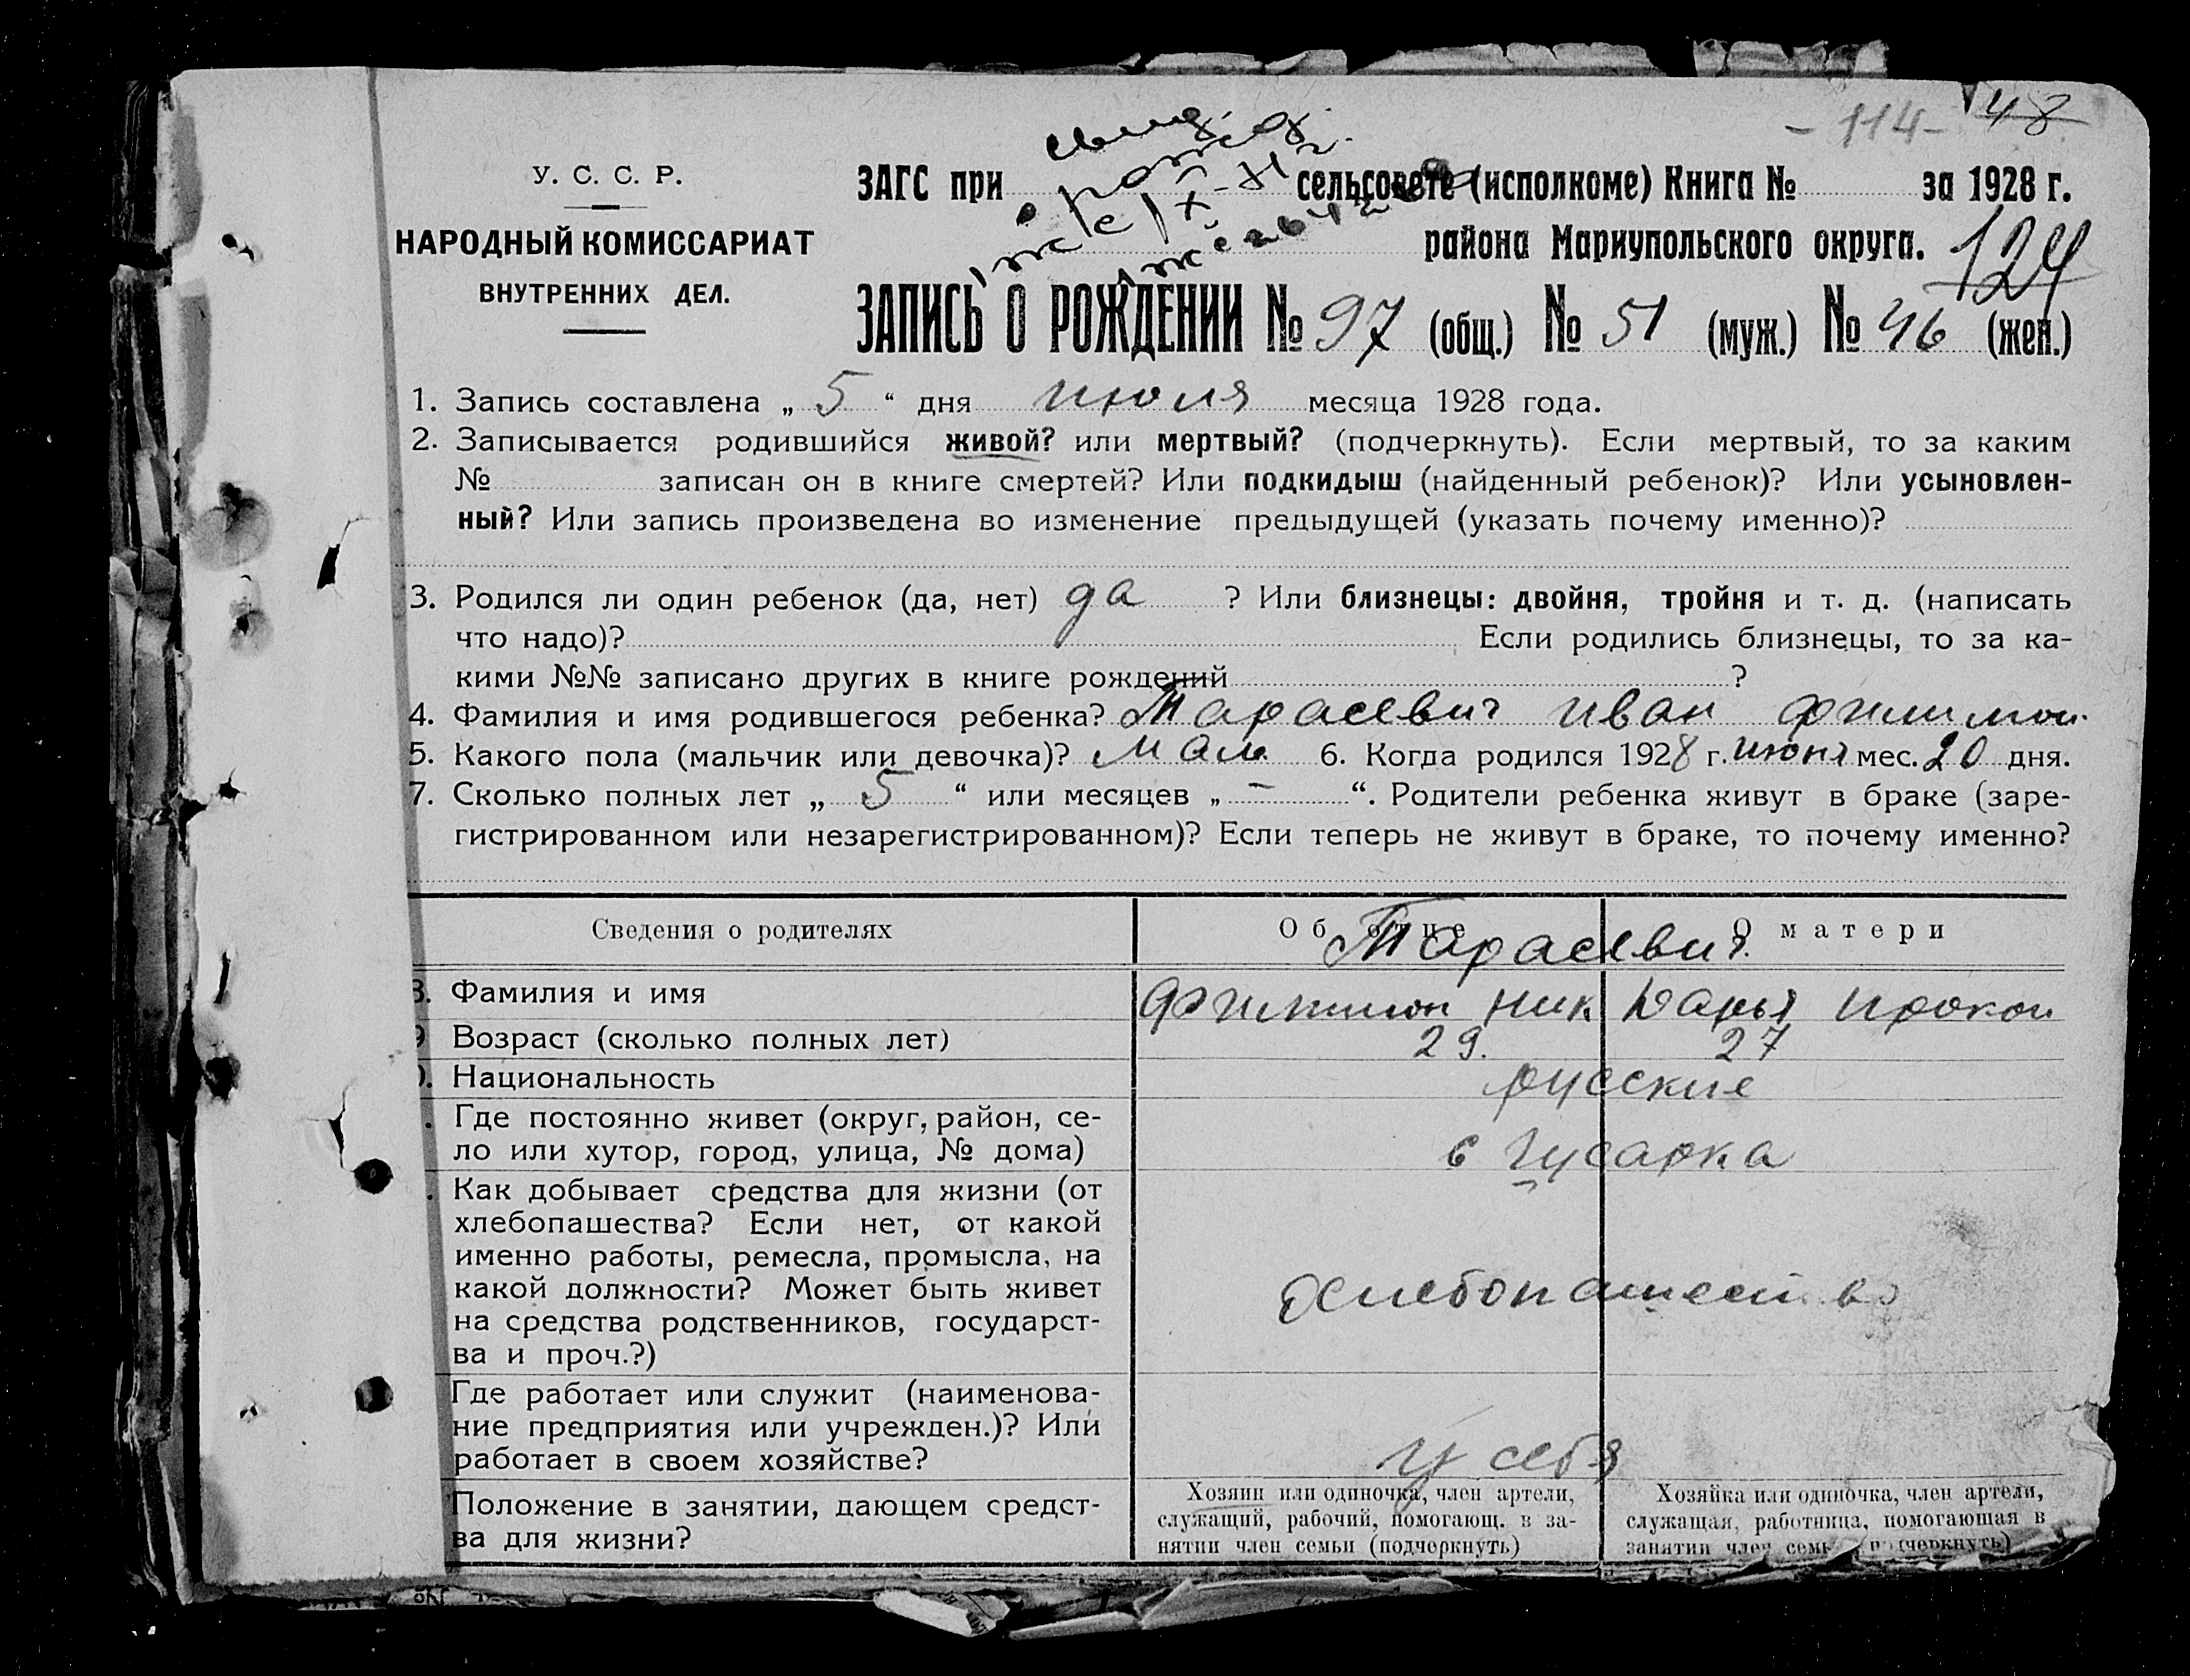 -114- 48
У. С. С. Р.
НАРОДНЫЙ КОМИССАРИАТ
ВНУТРЕННИХ ДЕЛ.
ЗАГС при сельсовете (исполкоме) Книга № за 1928 г.
района Мариупольского округа.
124
ЗАПИСЬ О РОЖДЕНИИ № 97 (общ.) № 51 (муж.) № 46 (жен.)
1. Запись составлена „ 5 “ дня июля месяца 1928 года.
2. Записывается родившийся живой? или мертвый? (подчеркнуть). Если мертвый, то за каким
№ записан он в книге смертей? Или подкидыш (найденный ребенок)? Или усыновлен-
ный? Или запись произведена во изменение предыдущей (указать почему именно)?
3. Родился ли один ребенок (да, нет) да ? Или близнецы: двойня, тройня и т. д. (написать
что надо)? Если родились близнецы, то за ка-
кими №№ записано других в книге рождений ?
4. Фамилия и имя родившегося ребенка? Тарасевич Иван Филимон.
5. Какого пола (мальчик или девочка)? мал. 6. Когда родился 1928 г. июня мес. 20 дня.
7. Сколько полных лет „ 5 “ или месяцев „ – “. Родители ребенка живут в браке (заре-
гистрированном или незарегистрированном)? Если теперь не живут в браке, то почему именно?
Сведения о родителях Об отце О матери
Тарасевич.
8. Фамилия и имя Филимон Ник Дарья Прокоп
9 Возраст (сколько полных лет) 29. 27
. Национальность русские
. Где постоянно живет (округ, район, се-
ло или хутор, город, улица, № дома) с Гусарка
. Как добывает средства для жизни (от
хлебопашества? Если нет, от какой
именно работы, ремесла, промысла, на
какой должности? Может быть живет
на средства родственников, государст-
ва и проч.?)
хлебопашество
Где работает или служит (наименова-
ние предприятия или учрежден.)? Или
работает в своем хозяйстве?
у себя
Положение в занятии, дающем средст-
ва для жизни?
Хозяин или одиночка, член артели,
служащий, рабочий, помогающ. в за-
нятии член семьи (подчеркнуть)
Хозяйка или одиночка, член артели,
служащая, работница, помогающая в
занятии член семьи (подчеркнуть)